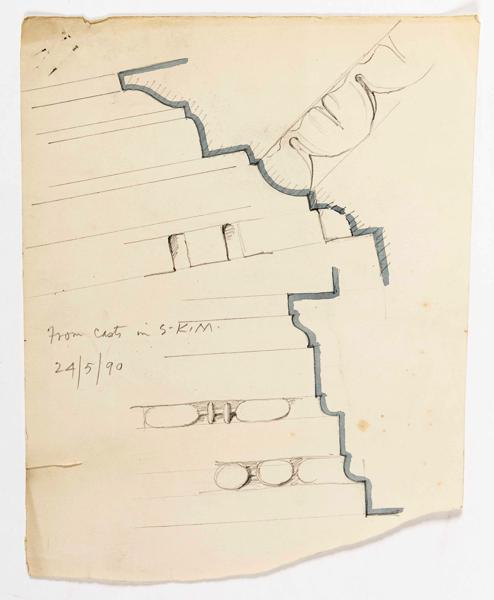 From casts in S.K.M.
24/5/90